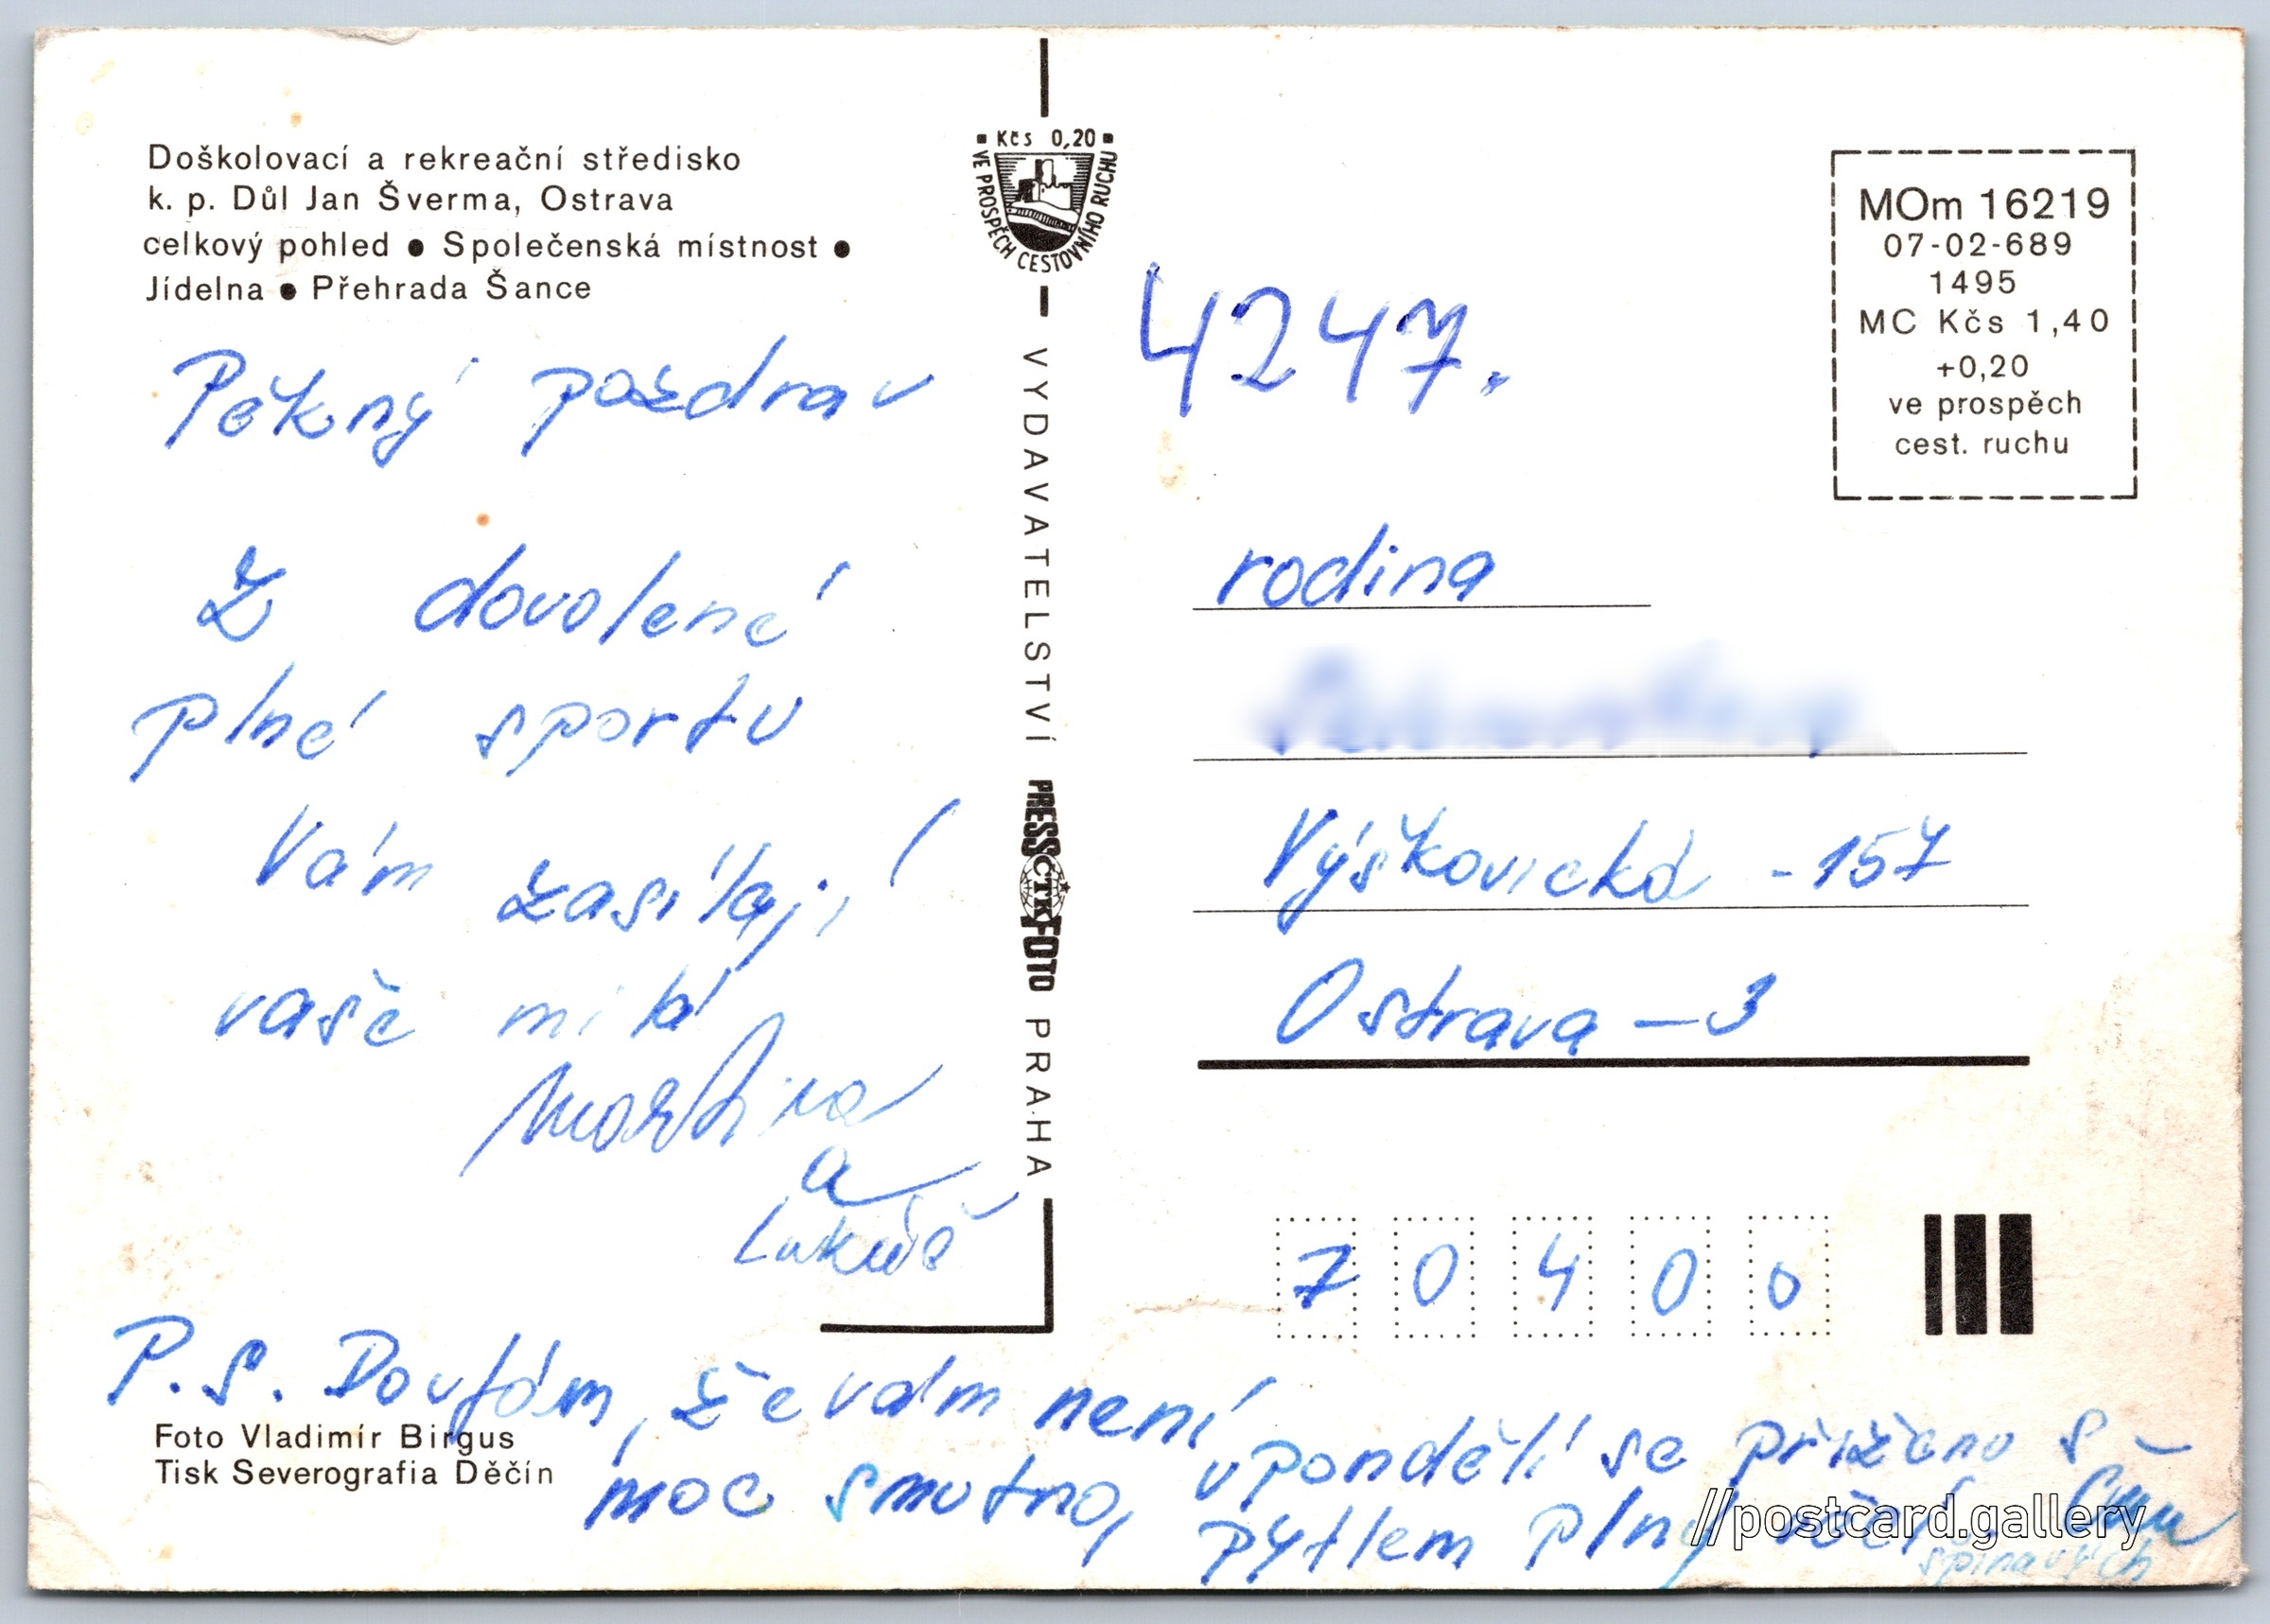 Doškolovací a rekreační středisko
k. p. Důl Jan Šverma, Ostrava
celkový pohled ● Společenská místnost ●
Jídelna ● Přehrada Šance
Pěkný pozdrav
z dovolené
plné sportu
Vám zasílají
vaše milá
Martina
a
Lukáš
P.S. Doufám, že vám není
moc smutno,
v pondělí se přiženu s
pytlem plný věcí
špinavých
Foto Vladimír Birgus
Tisk Severografia Děčín
Kčs 0,20
VE PROSPĚCH CESTOVNÍHO RUCHU
VYDAVATELSTVÍ PRESSFOTO PRAHA
ČTK
4247.
MOm 16219
07-02-689
1495
MC Kčs 1,40
+0,20
ve prospěch
cest. ruchu
rodina
Výškovická - 157
Ostrava - 3
7 0 4 0 0
//postcard.gallery